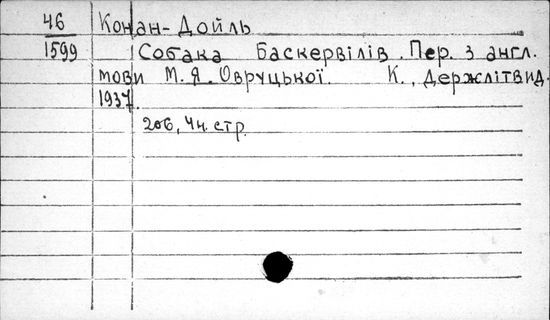 46 Конан-Дойль
1599 Собака Баскервілів. Пер. з англ.
мови М. Я. Овруцької. К., Держлітвид.
1937.
206, 4 н. стр.